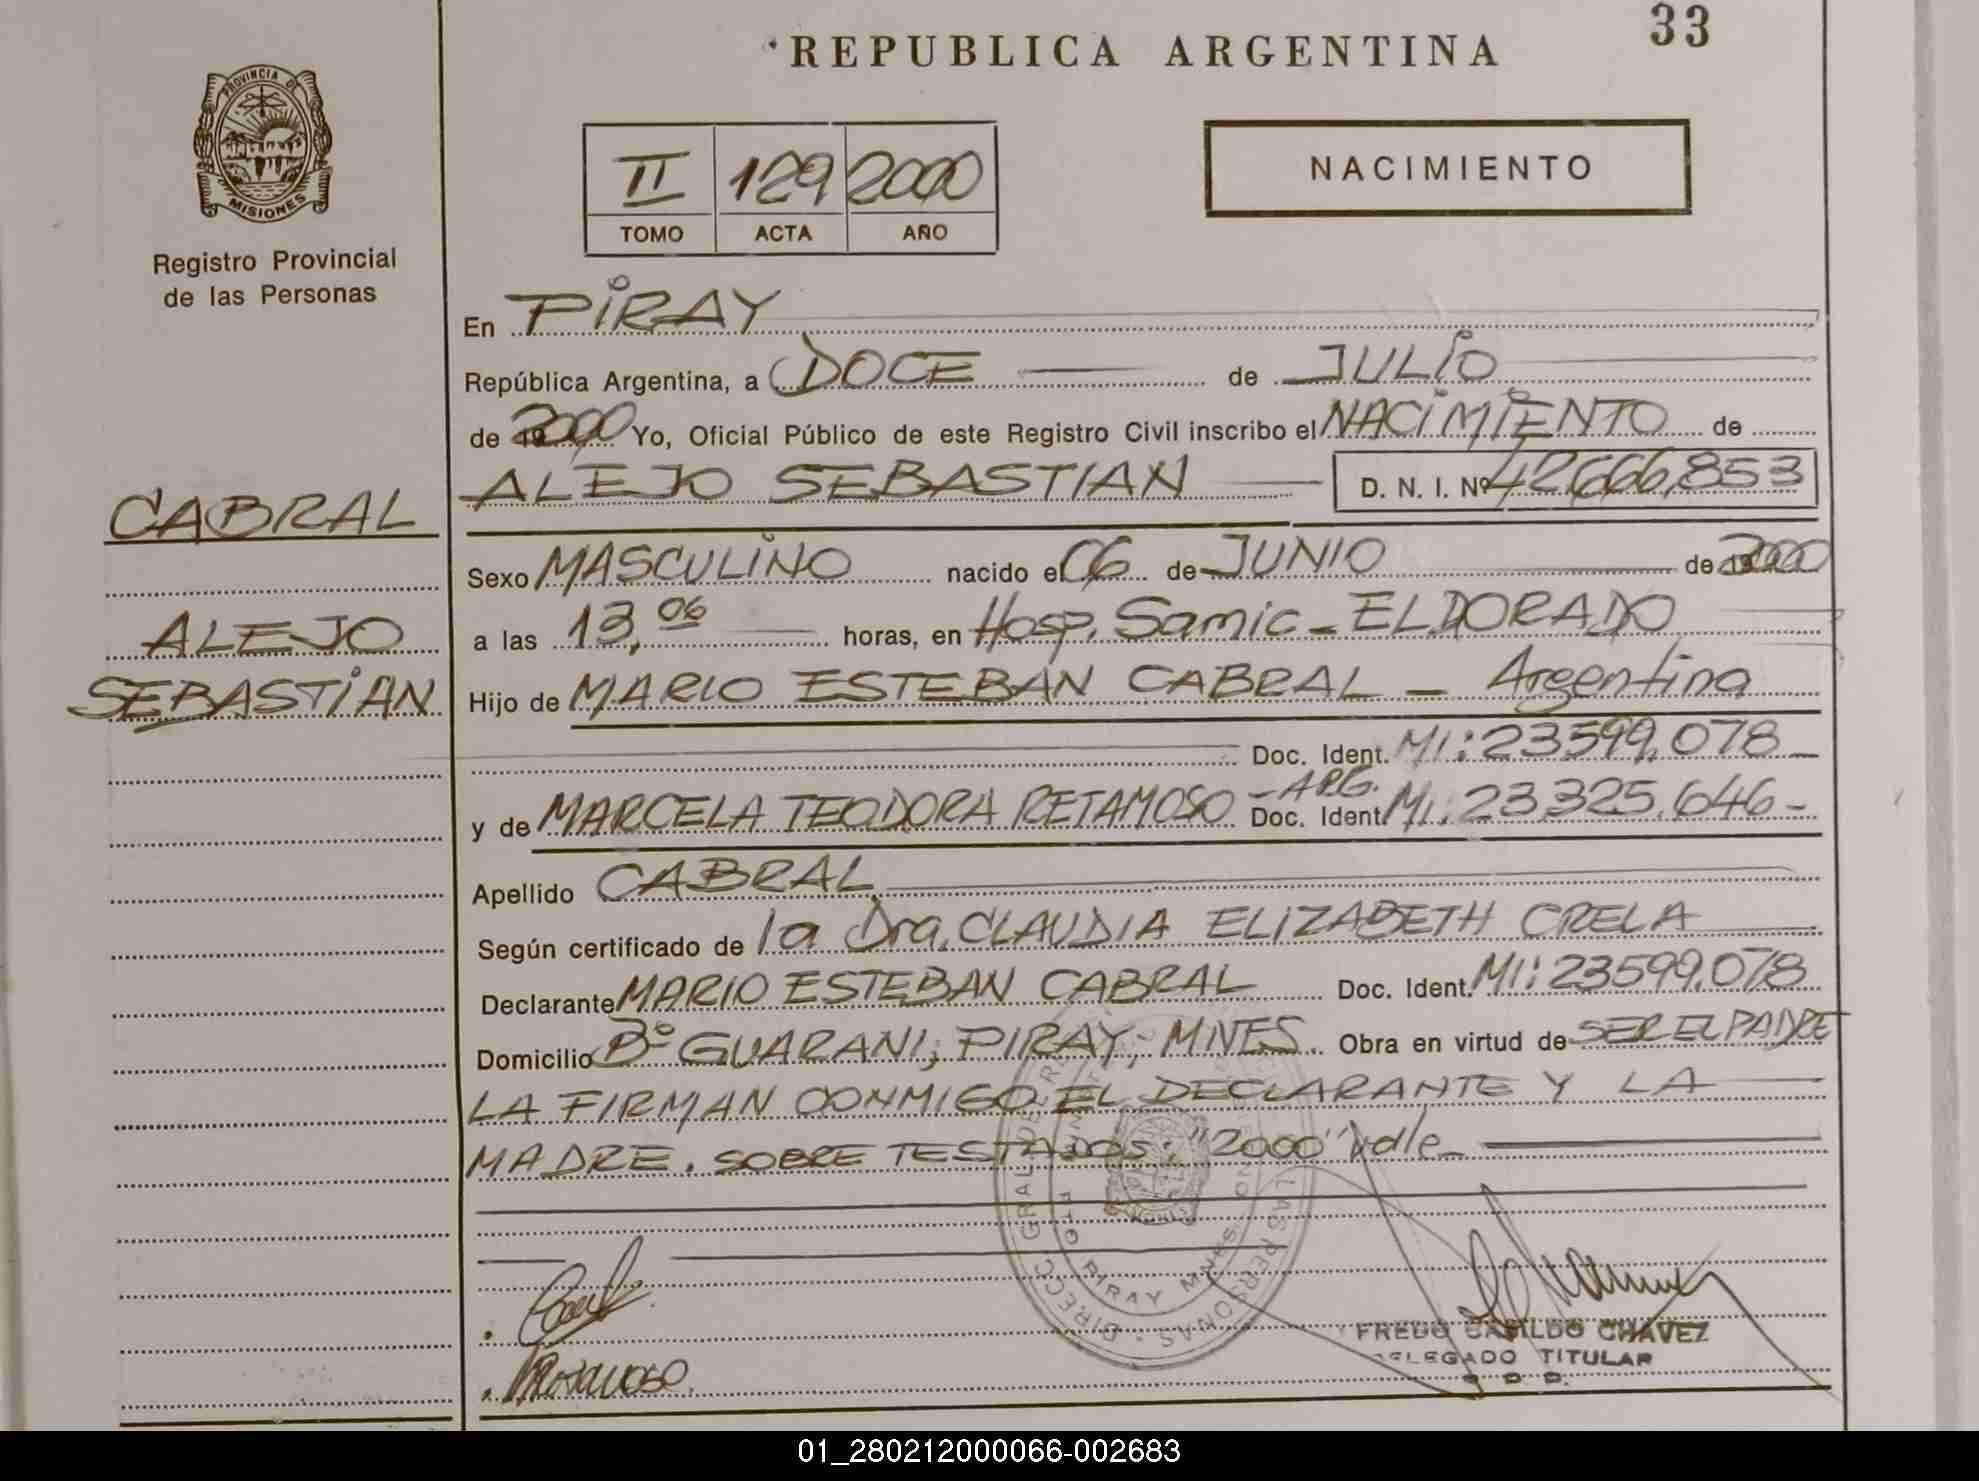 33
REPUBLICA ARGENTINA
PROVINCIA DE
MISIONES
Registro Provincial
de las Personas
II 129 2000
TOMO ACTA AÑO
NACIMIENTO
En PIRAY
República Argentina, a DOCE de JULIO
de 2000 Yo, Oficial Público de este Registro Civil inscribo el NACIMIENTO de
ALEJO SEBASTIAN D. N. I. Nº 42,666,853
CABRAL
ALEJO
SEBASTIAN
Sexo MASCULINO nacido el 06 de JUNIO de 2000
a las 13,06 horas, en Hosp. Samic - ELDORADO
Hijo de MARIO ESTEBAN CABRAL - Argentina
Doc. Ident. MI: 23599.078 -
y de MARCELA TEODORA RETAMOSO - ARG. Doc. Ident. MI. 23.325.646 -
Apellido CABRAL
Según certificado de la Dra. CLAUDIA ELIZABETH CRELA
Declarante MARIO ESTEBAN CABRAL Doc. Ident. MI: 23599.078
Domicilio Bº GUARANI, PIRAY, MNES. Obra en virtud de SER EL PADRE
LA FIRMAN CONMIGO EL DECLARANTE Y LA
MADRE. SOBRE TESTADOS: "2000" Vale
PIRAY MNES
FREDO CASILDO CHAVEZ
DELEGADO TITULAR
01_280212000066-002683